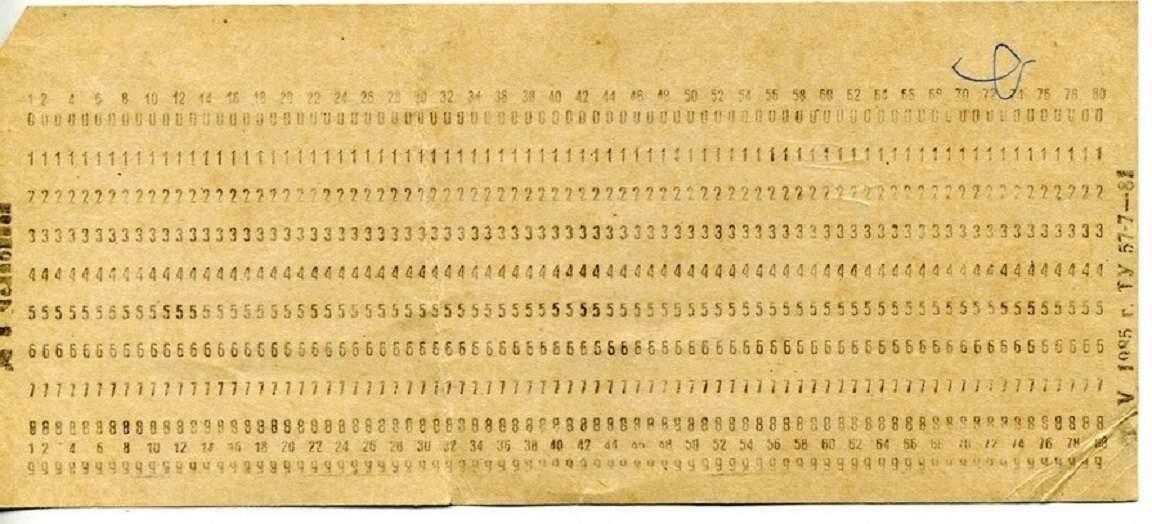 1 2 4 6 8 10 12 14 16 18 20 22 24 26 28 30 32 34 36 38 40 42 44 46 48 50 52 54 56 58 60 62 64 66 68 70 72 74 76 78 80
00000000000000000000000000000000000000000000000000000000000000000000000000000000
11111111111111111111111111111111111111111111111111111111111111111111111111111111
22222222222222222222222222222222222222222222222222222222222222222222222222222222
33333333333333333333333333333333333333333333333333333333333333333333333333333333
44444444444444444444444444444444444444444444444444444444444444444444444444444444
55555555555555555555555555555555555555555555555555555555555555555555555555555555
66666666666666666666666666666666666666666666666666666666666666666666666666666666
77777777777777777777777777777777777777777777777777777777777777777777777777777777
88888888888888888888888888888888888888888888888888888888888888888888888888888888
1 2 4 6 8 10 12 14 16 18 20 22 24 26 28 30 32 34 36 38 40 42 44 46 48 50 52 54 56 58 60 62 64 66 68 70 72 74 76 78 80
99999999999999999999999999999999999999999999999999999999999999999999999999999999
V 1985 г. ТУ